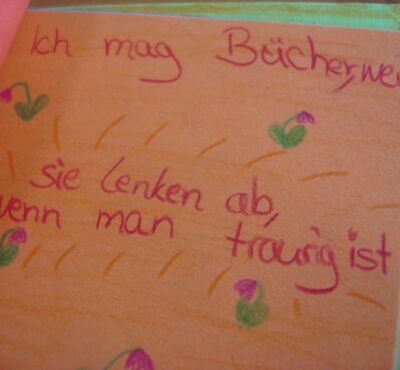 Ich mag Bücher, wei
sie lenken ab,
wenn man traurig ist